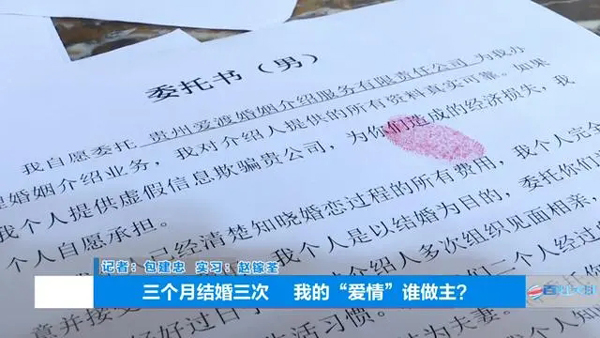 委托书（男）
我自愿委托 贵州爱渡婚姻介绍服务有限责任公司 为我办
理婚姻介绍业务，我对介绍人提供的所有资料真实可靠。如果
我个人提供虚假信息欺骗贵公司，为你们造成的经济损失，我
个人自愿承担。
已经清楚知晓婚恋过程的所有费用，我个人完全
我个人是以结婚为目的，委托你们
介绍人多次组织见面相亲，
二个人经过
意并接受
好好过日子
生活习惯。
成为夫妻。
记者：包建忠 实习：赵镓荃
三个月结婚三次 我的“爱情”谁做主？